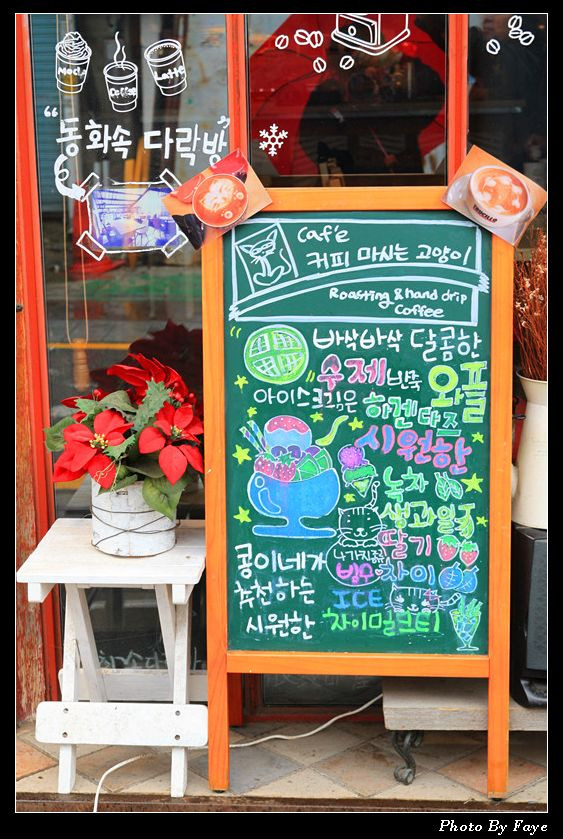 Mocha
Coffee
Latte
“동화속 다락방”
Caf'e
커피 마시는 고양이
Roasting & hand drip
Coffee
"바삭바삭 달콤한
수제 반죽 와플"
아이스크림은 하겐다즈
시원한
녹차
생과일
딸기
빙수
콩이네가
추천하는
시원한
ICE
차이밀크티
Photo By Faye